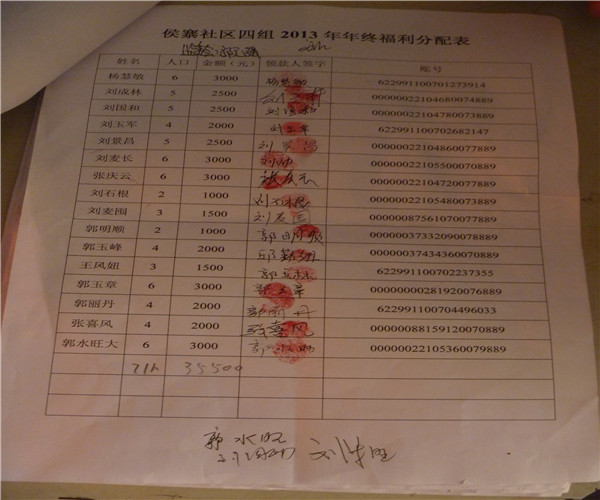 侯寨社区四组2013年年终福利分配表
姓名 人口 金额(元) 领款人签字 账号
杨慧敏 6 3000 杨慧敏 622991100701273914
刘成林 5 2500 00000022104680074889
刘国和 5 2500 刘国和 00000022104780073889
刘玉军 4 2000 刘玉军 622991100702682147
刘景昌 5 2500 刘景昌 00000022104860077889
刘麦长 6 3000 00000022105500070889
张庆云 6 3000 张庆云 00000022104720077889
刘石根 2 1000 刘石根 00000022105480073889
刘麦囤 3 1500 00000087561070077889
郭明顺 2 1000 郭明顺 00000037332090078889
郭玉峰 4 2000 00000037434360070889
王凤妞 3 1500 622991100702237355
郭玉章 6 3000 00000000281920076889
郭丽丹 4 2000 郭丽丹 622991100704496033
张喜风 4 2000 张喜风 00000088159120070889
郭水旺大 6 3000 00000022105360079889
71人 35500
郭水旺